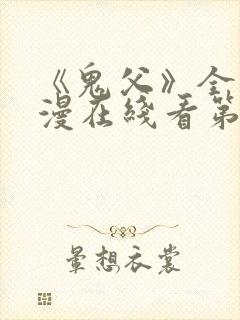 《鬼父》全
漫在线看第
云想衣裳